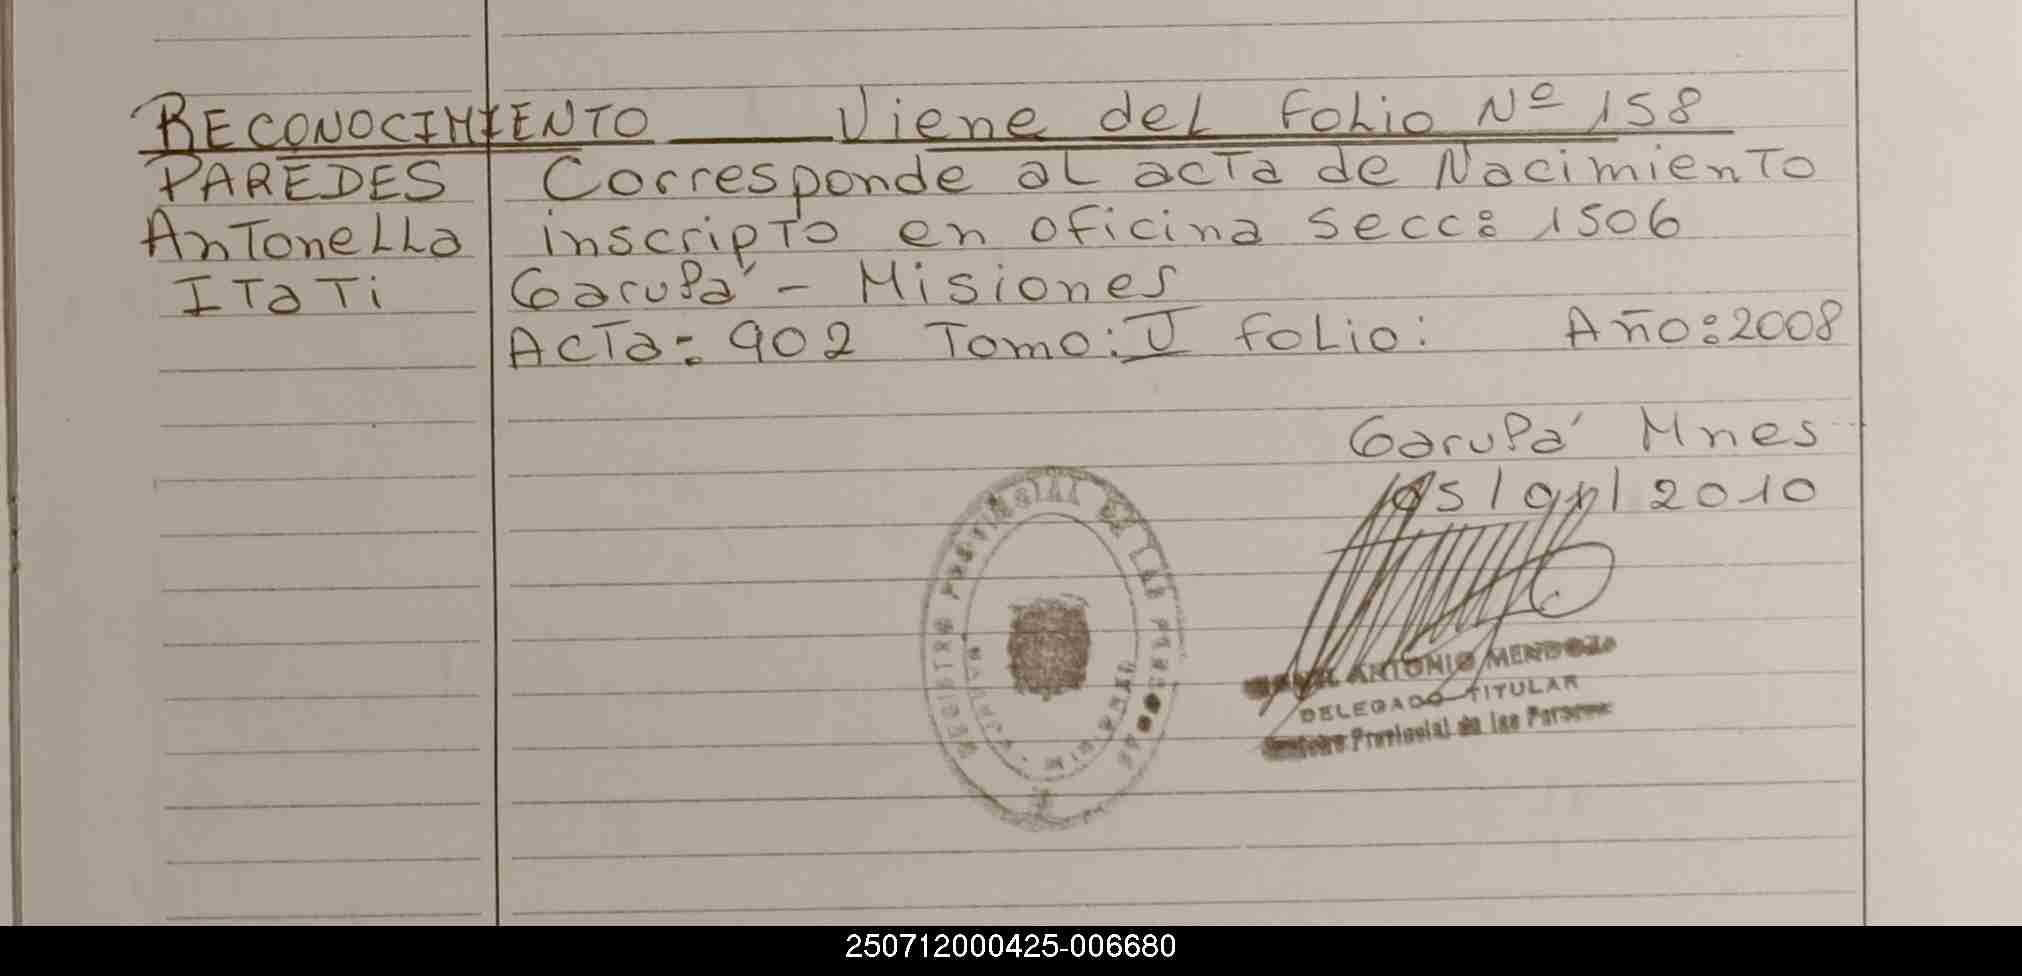 RECONOCIMIENTO Viene del Folio Nº 158
PAREDES Corresponde al acta de Nacimiento
Antonella inscripto en oficina secc: 1506
Itati Garupá - Misiones
Acta: 902 Tomo: V folio: Año: 2008
Garupá Mnes
2010
REGISTRO PROVINCIAL DE LAS PERSONAS
ANTONIO MENDOZA
DELEGADO TITULAR
Provincial de las Personas
250712000425-006680